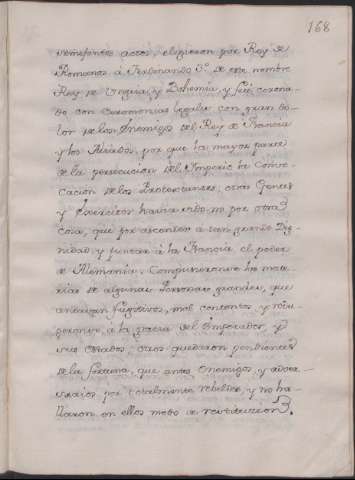 168
semejantes actos, eligieron por Rey de
Romanos à Ferdinando 3.º de este nombre
Rey de Ungria, y Bohemia, y fue corona-
do con ceremonias legales con gran do-
lor de los Enemigos del Rey de Francia
y los Aliados, por que la mayor parte
de la persecucion del Imperio la
cacion de los Protestantes, otras Gentes
y Exercitos havia sido no por otra
cosa, que por ascender a tan grande Dig-
nidad, y juntar à la Francia el poder
de Alemania. Compusieronse las mate-
rias de algunas Personas grandes, que
andavan fugitivos, mal contentos, y
à la gracia del Emperador, y
sus Estados, otros quedaron pendientes
de la fortuna, que antes Enemigos, y
por totalmente rebeldes, y no ha-
llaron en ellos modo de restitucion.